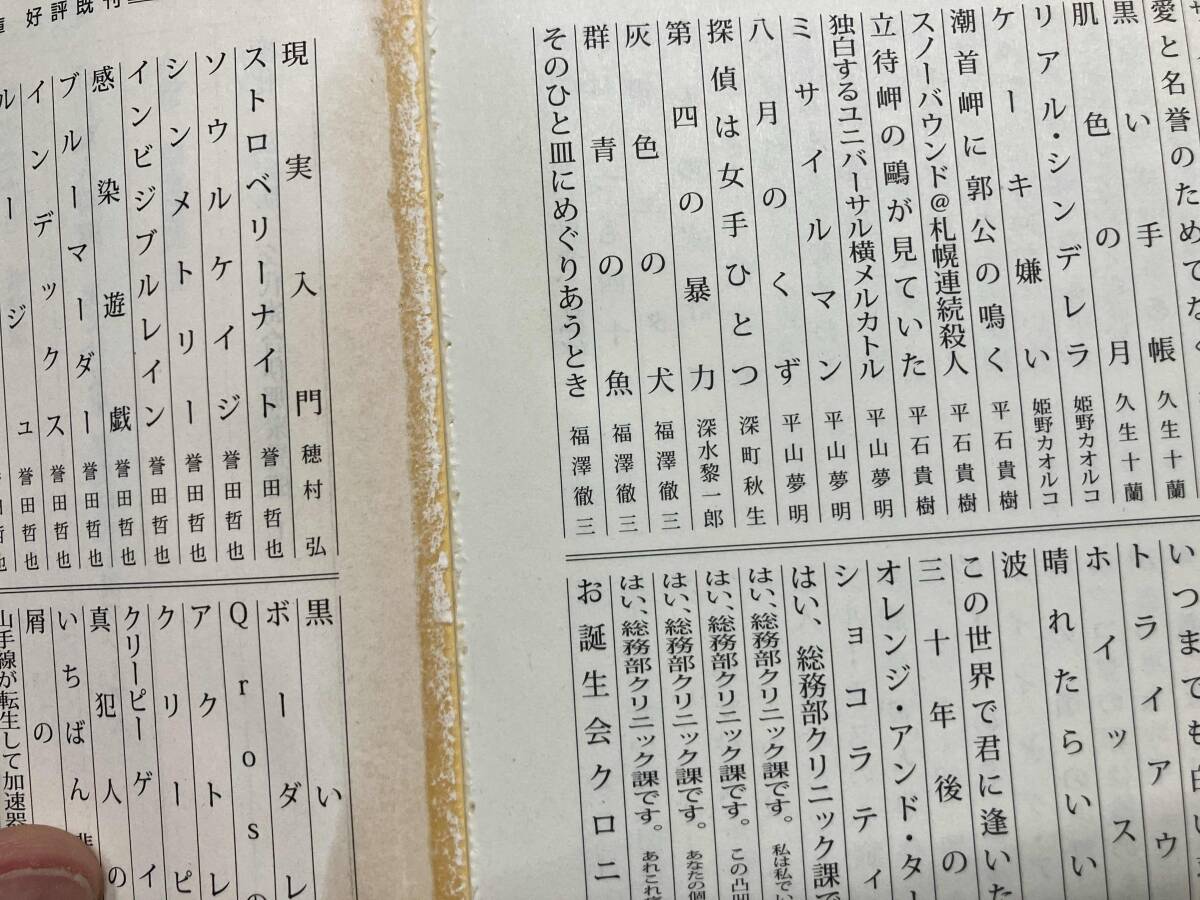 愛と名誉のためでなく
黒い手帳 久生十蘭
肌色の月 久生十蘭
リアル・シンデレラ 姫野カオルコ
ケーキ嫌い 姫野カオルコ
潮首岬に郭公の鳴く 平石貴樹
スノーバウンド@札幌連続殺人 平石貴樹
立待岬の鷗が見ていた 平石貴樹
独白するユニバーサル横メルカトル 平山夢明
ミサイルマン 平山夢明
八月のくず 平山夢明
探偵は女手ひとつ 深町秋生
第四の暴力 深水黎一郎
灰色の犬 福澤徹三
群青の魚 福澤徹三
そのひと皿にめぐりあうとき 福澤徹三
いつまでも白い
トライアウ
ホイッス
晴れたらいい
波
この世界で君に逢いた
三十年後の
オレンジ・アンド・ター
ショコラティ
はい、総務部クリニック課で
はい、総務部クリニック課です。 私は私でい
はい、総務部クリニック課です。 この凸凹
はい、総務部クリニック課です。 あなたの個
はい、総務部クリニック課です。 あれこれ
お誕生会クロニ
好評既刊
現実入門 穂村弘
ストロベリーナイト 誉田哲也
ソウルケイジ 誉田哲也
シンメトリー 誉田哲也
インビジブルレイン 誉田哲也
感染遊戯 誉田哲也
ブルーマーダー 誉田哲也
インデックス 誉田哲也
ルージュ 誉田哲也
黒い
ボーダレ
Qrosの
アクトレ
クリーピ
クリーピーゲイ
真犯人の
いちばん
屑の
山手線が転生して加速器